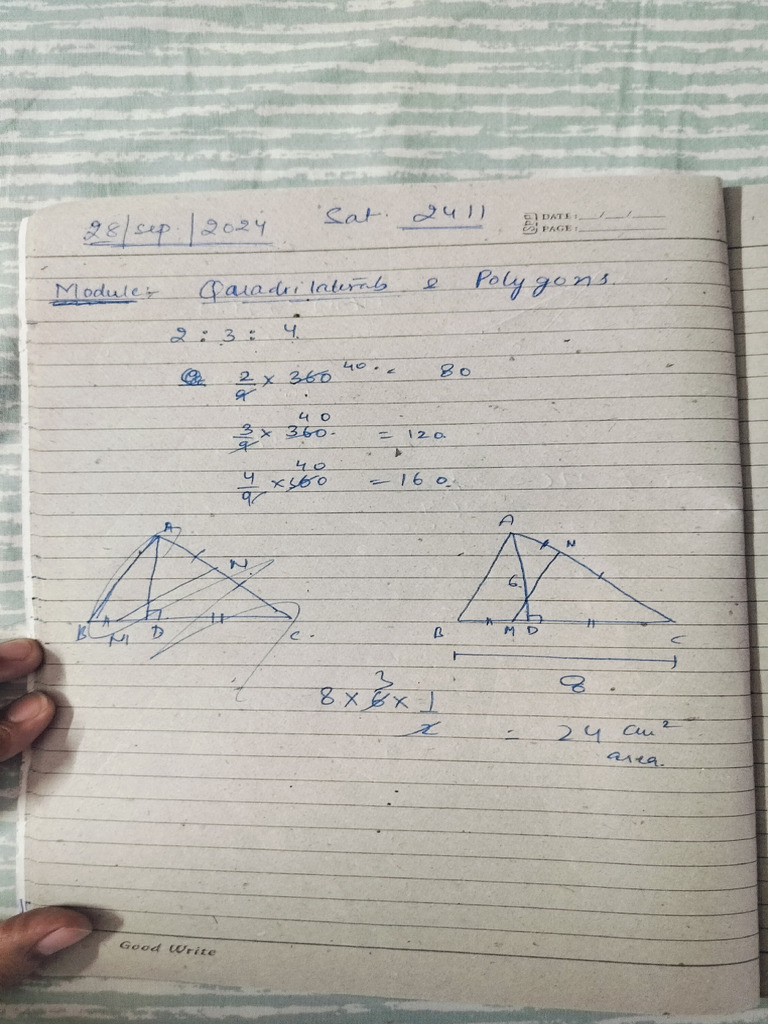 28/sep/2024 Sat. 2411
DATE: __/__/__
PAGE:
Module:- Quadrilaterals & Polygons.
2 : 3 : 4
2/9 × 360 40 = 80
3/9 × 360 40 = 120
4/9 × 360 40 = 160
A A
N N
6
B M D C B M D C
8
8 × 6 3 × 1/2 = 24 cm²
area.
Good Write